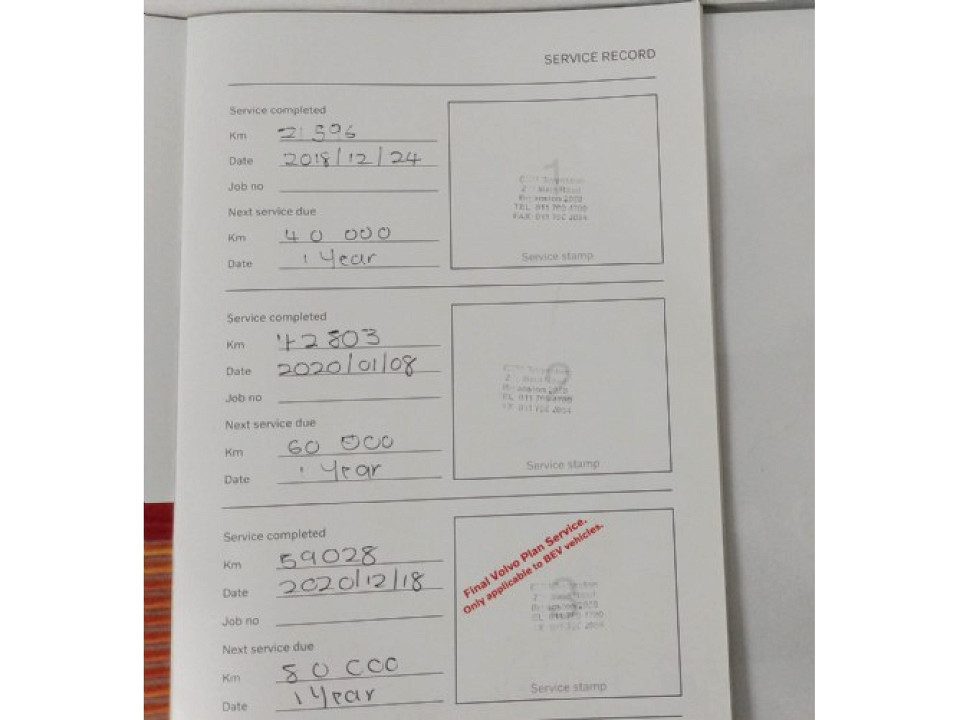 SERVICE RECORD
Service completed
Km 21 596
Date 2018/12/24
Job no
Next service due
Km 40 000
Date 1 Year
1
TEL 011
FAX 011
Service stamp
Service completed
Km 42 803
Date 2020/01/08
Job no
Next service due
Km 60 000
Date 1 Year
2
011
Service stamp
Service completed
Km 59028
Date 2020/12/18
Job no
Next service due
Km 80 000
Date 1 Year
Final Volvo Plan Service.
Only applicable to BEV vehicles.
3
Service stamp